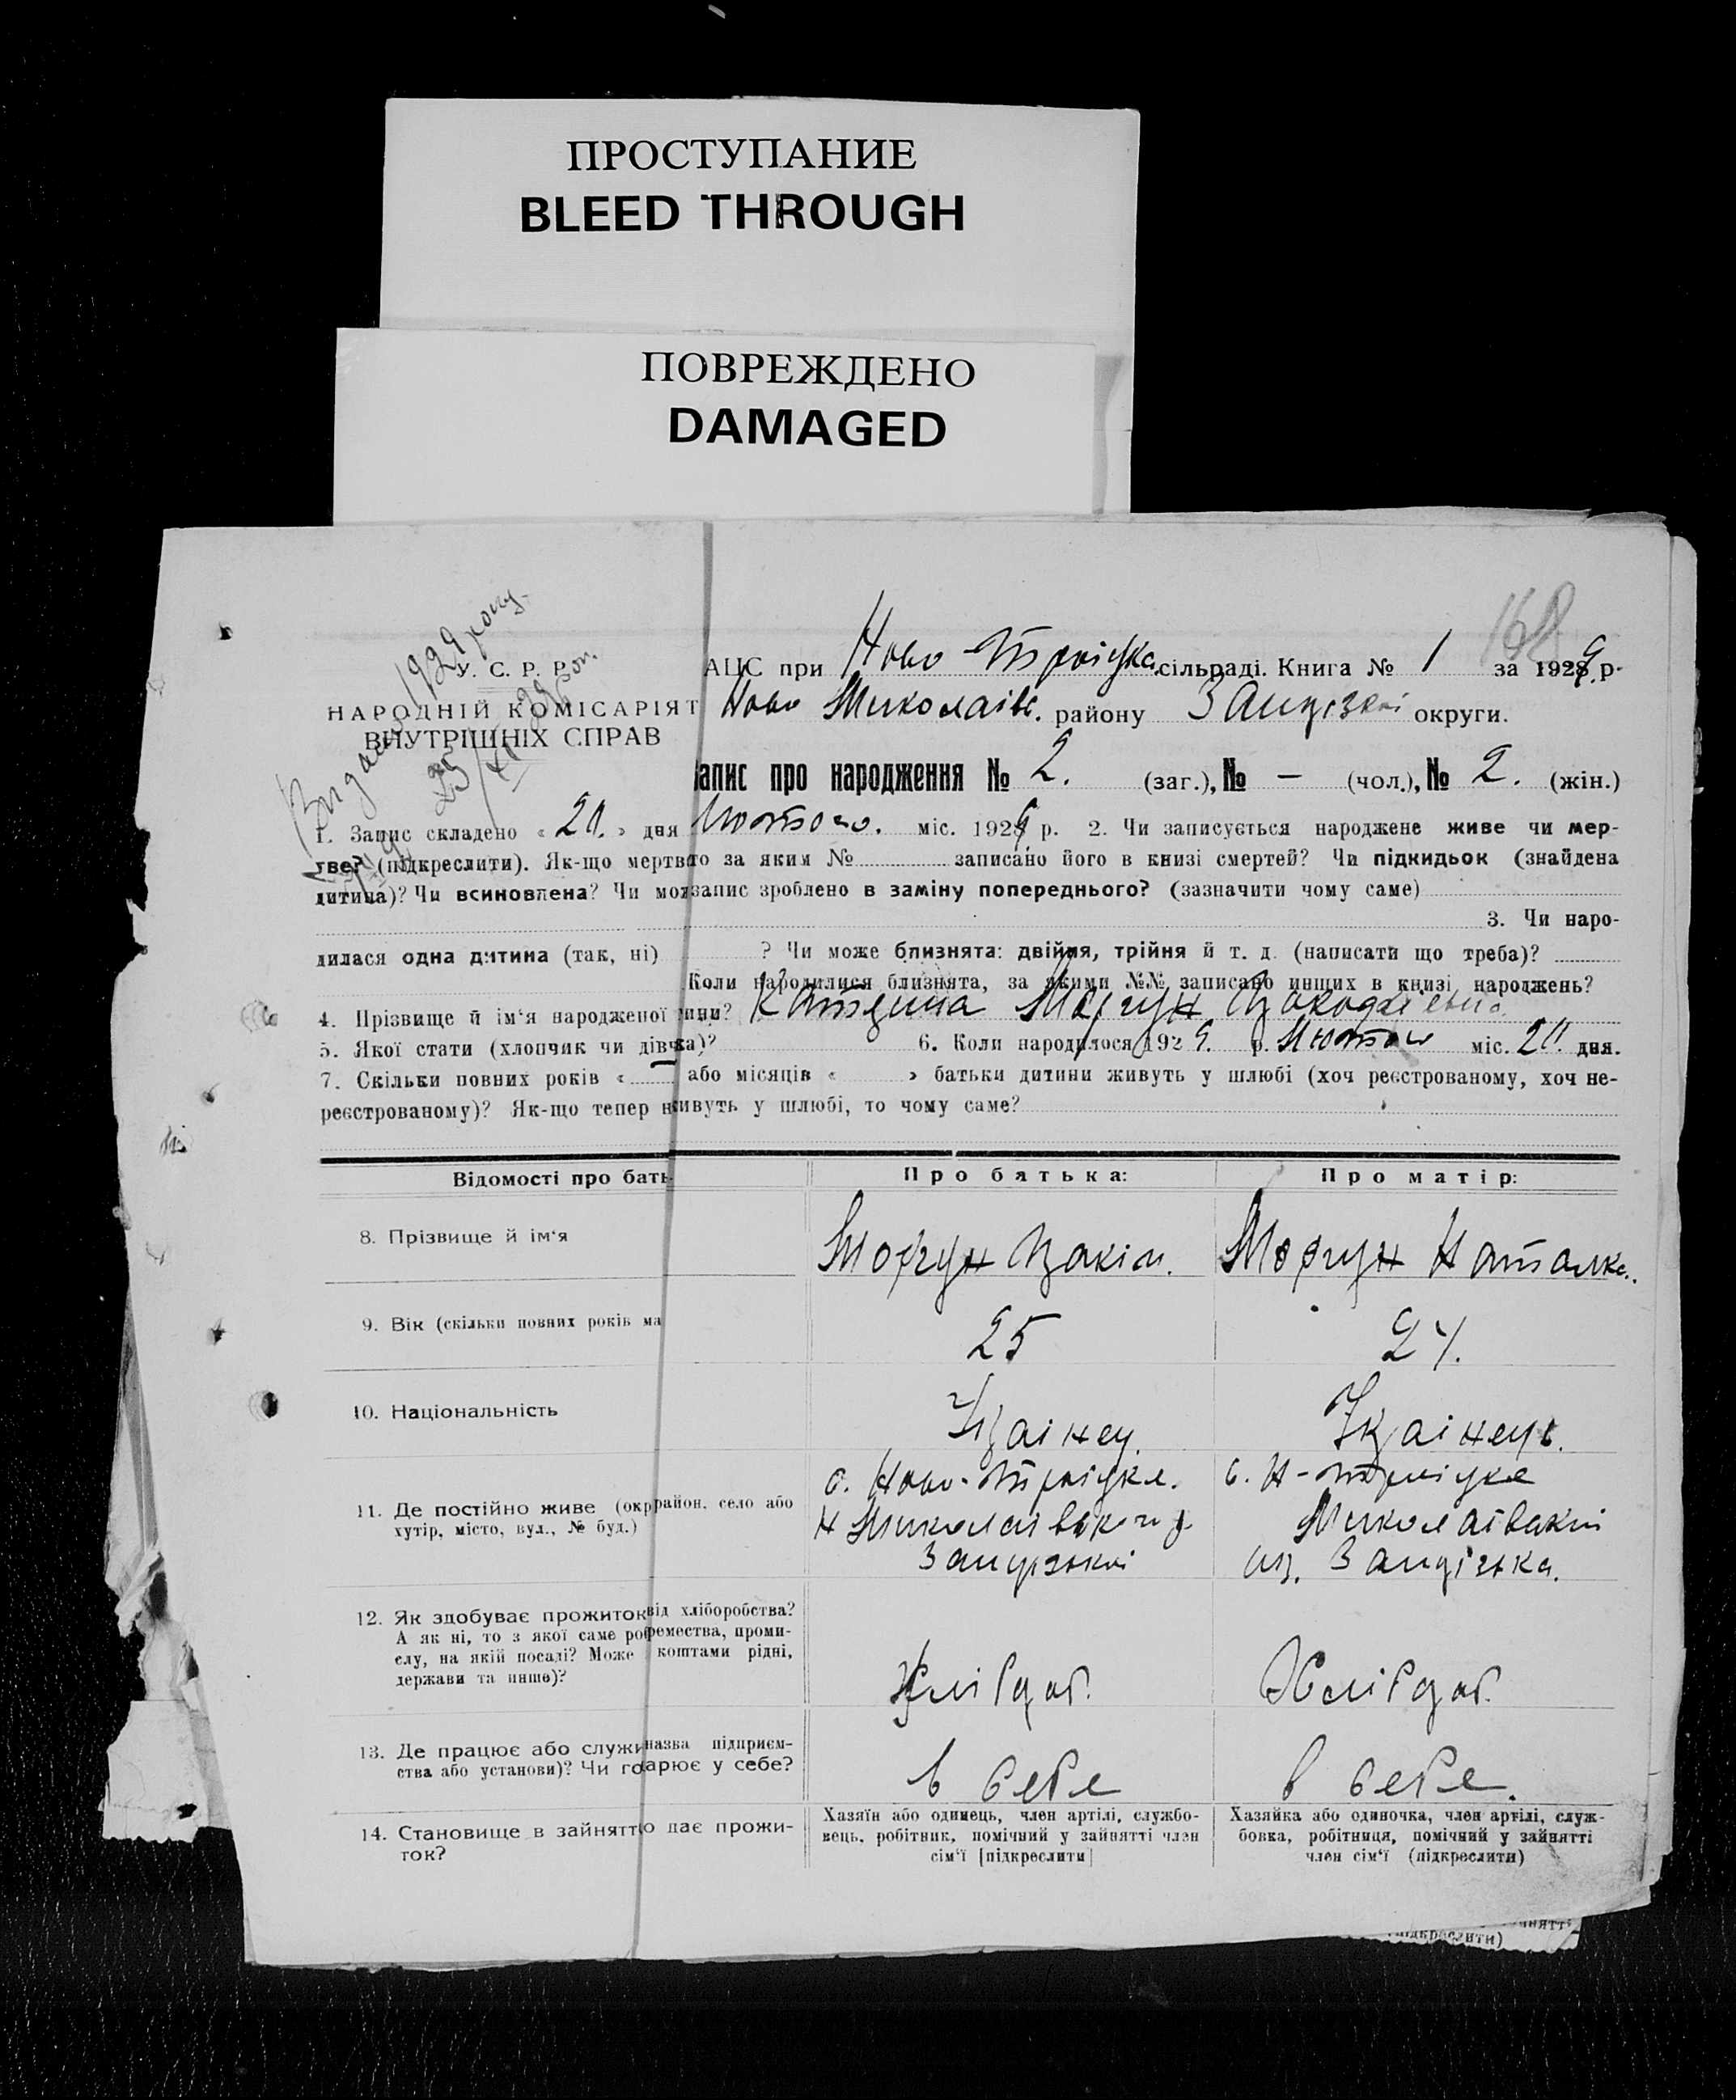 ПРОСТУПАНИЕ
BLEED THROUGH
ПОВРЕЖДЕНО
DAMAGED
У. С. Р. Р.
НАРОДНІЙ КОМІСАРІЯТ
ВНУТРІШНІХ СПРАВ
1929 року
АЦС при Ново-Троіцка сільраді. Книга № 1 за 1929 р.
Ново Миколаівс. району округи.
апис про народження № 2. (заг.), № — (чол.), № 2. (жін.)
1. Запис складено « 20. » дня Лютого. міс. 1929 р. 2. Чи записується народжене живе чи мер-
тве? (підкреслити). Як-що мертв то за яким № записано його в книзі смертей? Чи підкидьок (знайдена
дитина)? Чи всиновлена? Чи мо запис зроблено в заміну попереднього? (зазначити чому саме)
3. Чи наро-
дилася одна дитина (так, ні) ? Чи може близнята: двійня, трійня й т. д. (написати що треба)?
Коли народилися близнята, за якими №№ записано инших в книзі народжень?
4. Прізвище й ім'я народженої ини? Катерина Моргун
5. Якої стати (хлопчик чи дівчка)? 6. Коли народилося 1929. р. міс. 20. дня.
7. Скільки повних років « — або місяців « » батьки дитини живуть у шлюбі (хоч реєстрованому, хоч не-
реєстрованому)? Як-що тепер н ивуть у шлюбі, то чому саме?
Відомості про бать Про батька: Про матір:
8. Прізвище й ім'я Моргун Якім. Моргун Наталка.
9. Вік (скільки повних років ма 25
10. Національність Украінец. Украінець.
11. Де постійно живе (окр район, село або
хутір, місто, вул., № буд.)
с. Ново-Троіцке.
с. Н-Троіцке
12. Як здобуває прожиток від хліборобства?
А як ні, то з якої саме ро ремества, проми-
слу, на якій посаді? Може коштами рідні,
держави та инше)?
Хлібороб. Хлібороб.
13. Де працює або служи назва підприєм-
ства або установи)? Чи го арює у себе?
в себе в себе.
14. Становище в занятт о дає прожи-
ток?
Хазяїн або одинець, член артілі, службо-
вець, робітник, помічний у зайнятті член
сім'ї [підкреслити]
Хазяйка або одиночка, член артілі, служ-
бовка, робітниця, помічний у зайнятті
член сім'ї (підкреслити)